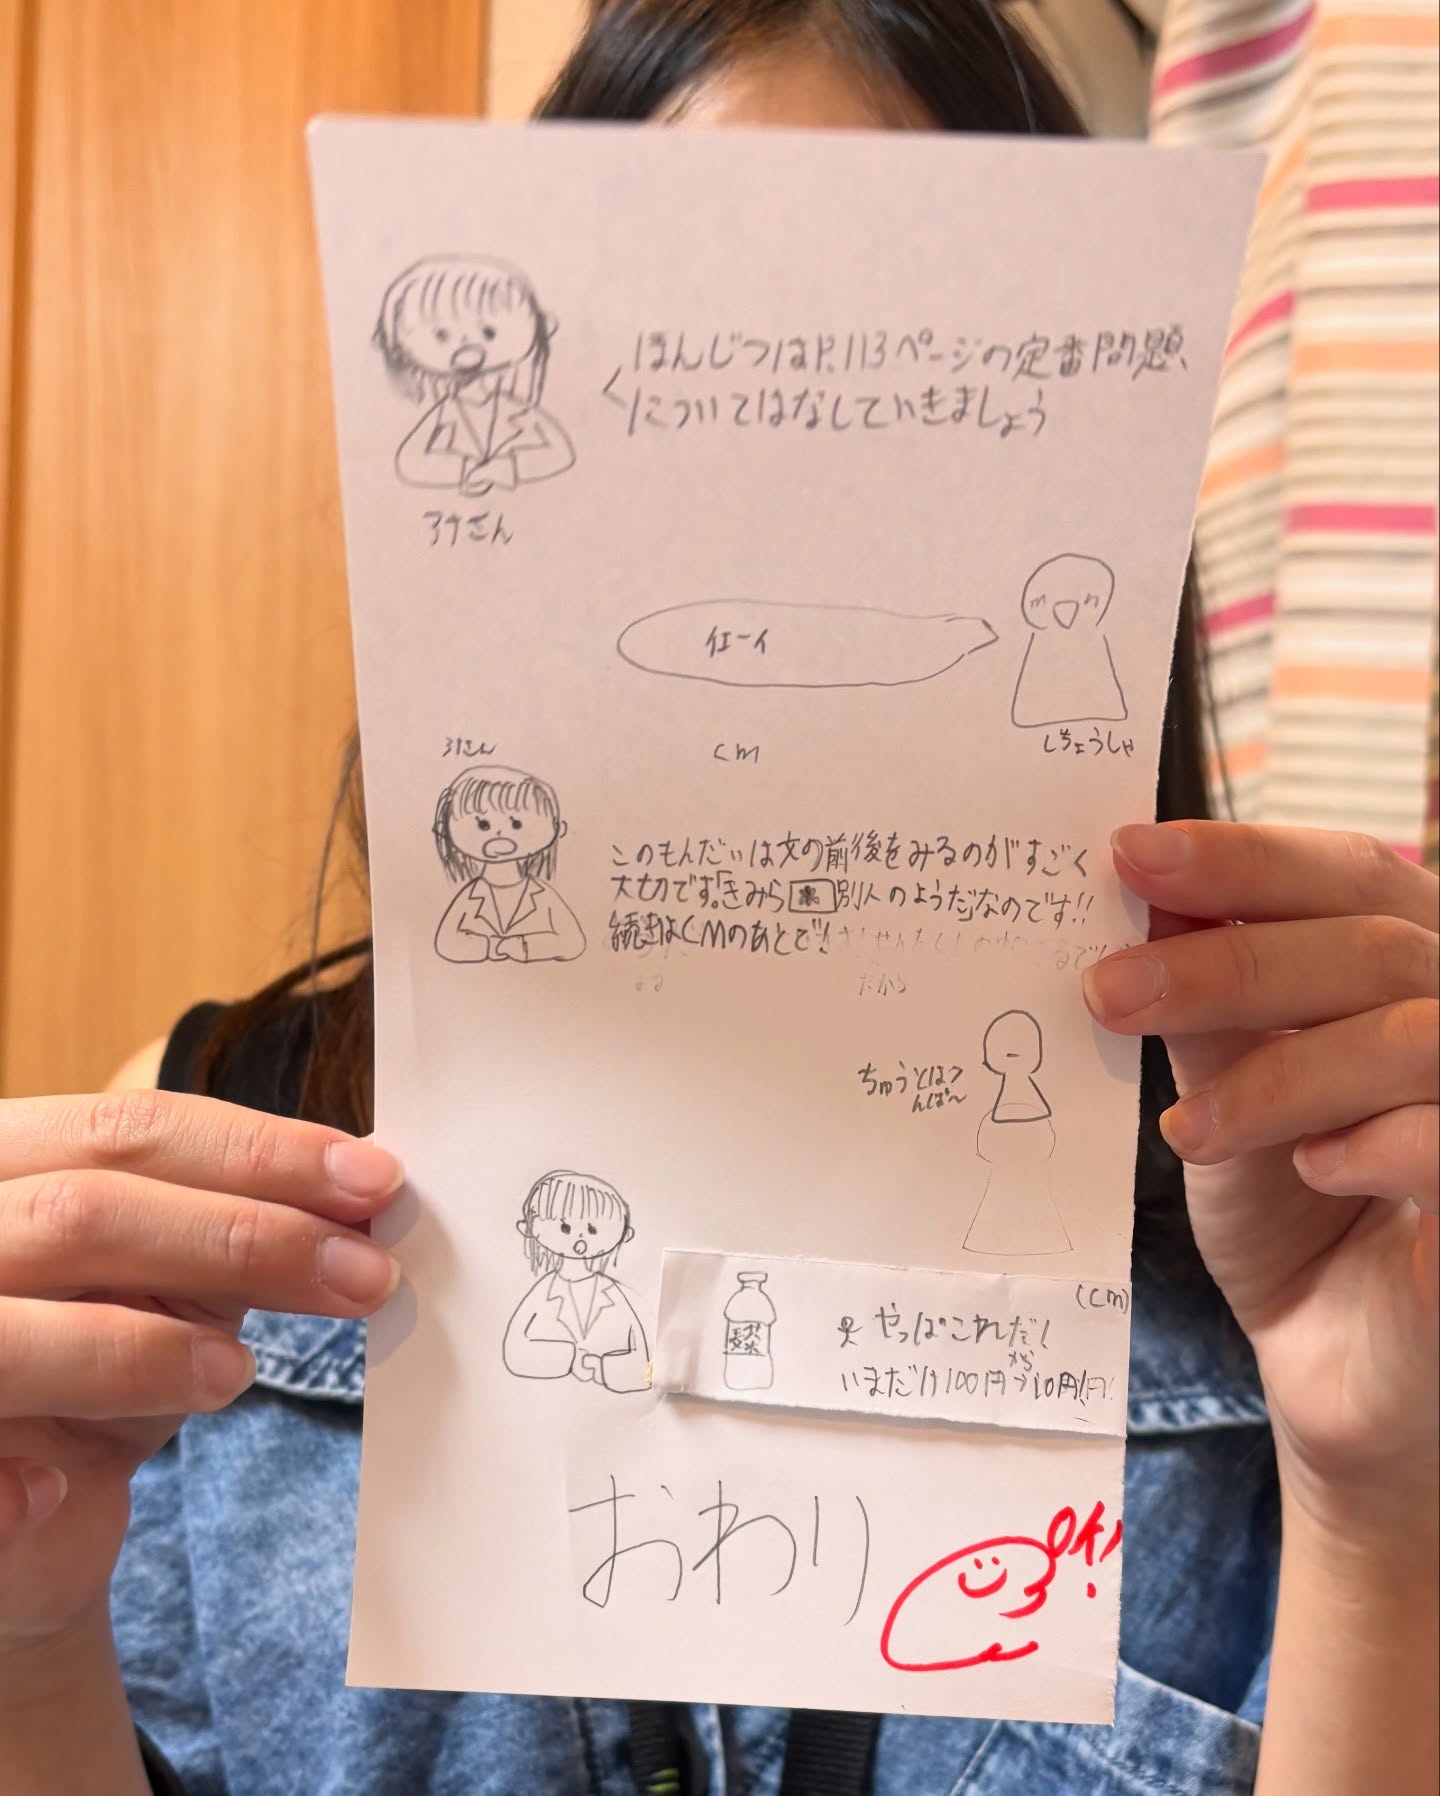 ほんじつはP.113ページの定番問題、
についてはなしていきましょう
アナさん
イェーイ
しちょうしゃ
アナさん
cm
このもんだいは文の前後をみるのがすごく
大切です。「きみら 別人のようだ」なのです!!
続きはCMのあとで!
よる
だから
ちゅうとはつ
んぱ〜
(cm)
やっぱこれだ!
いまだけ100円から10円!
おわり